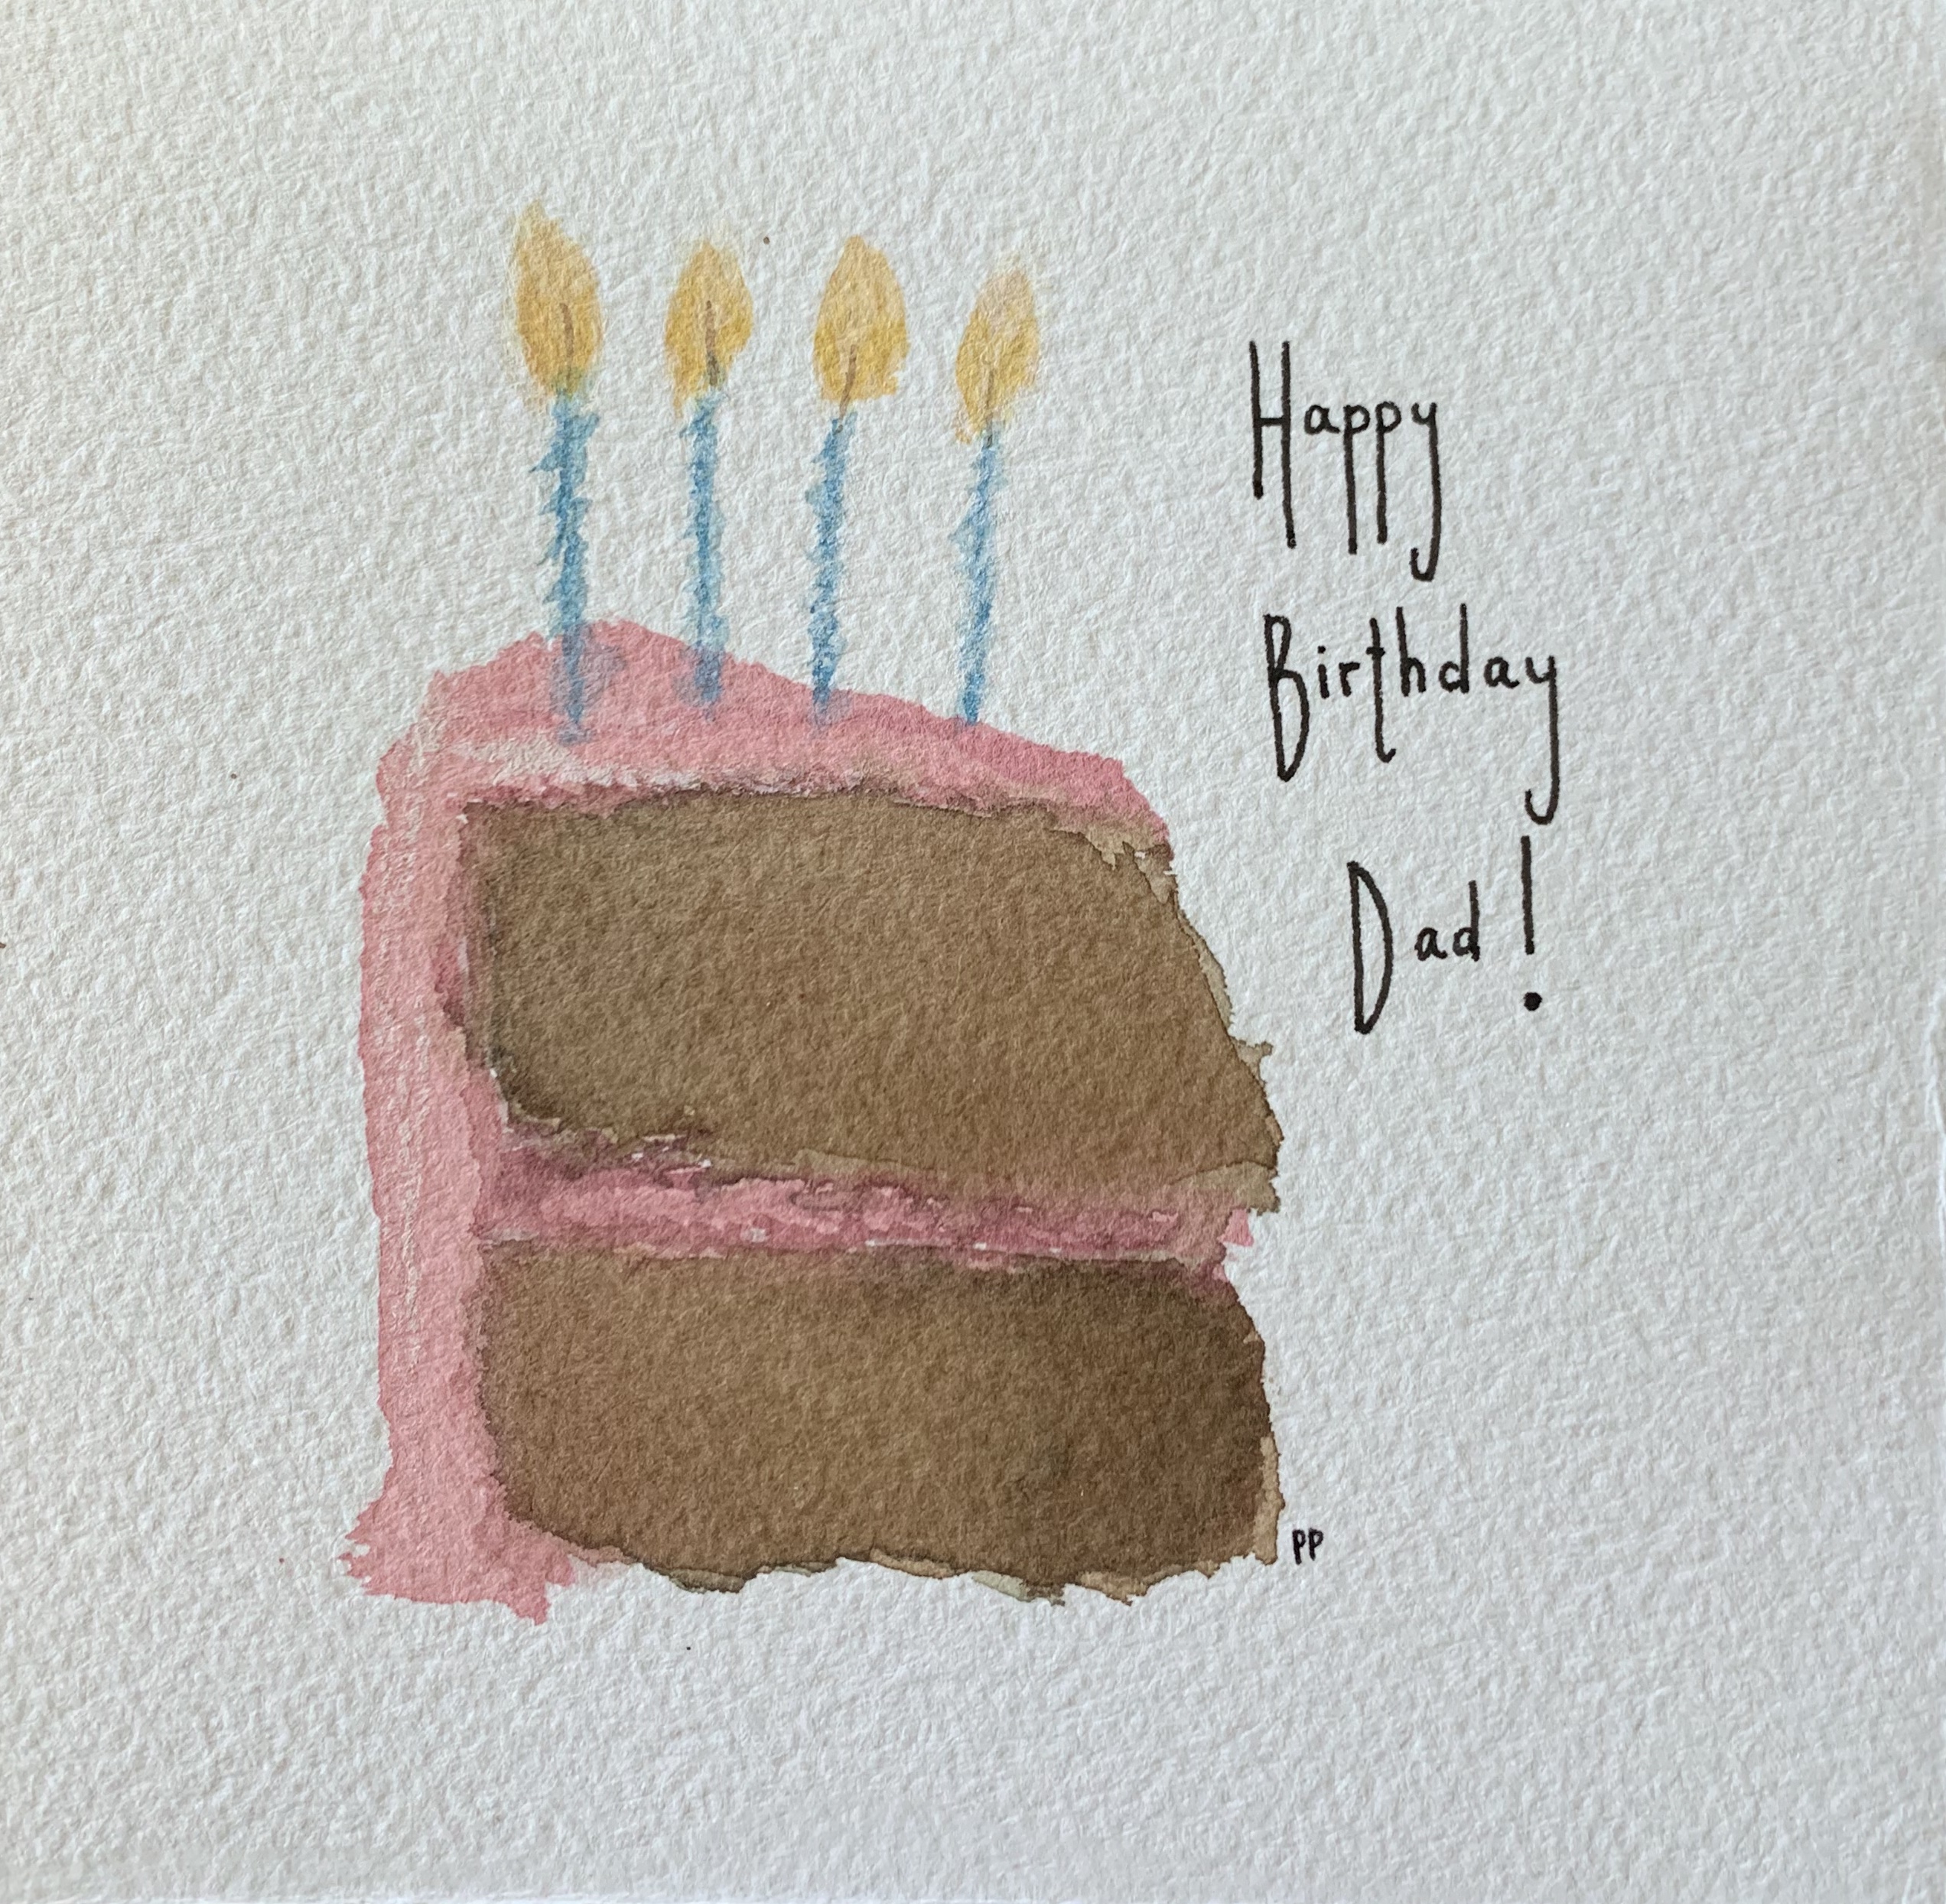 Happy
Birthday
Dad!
PP